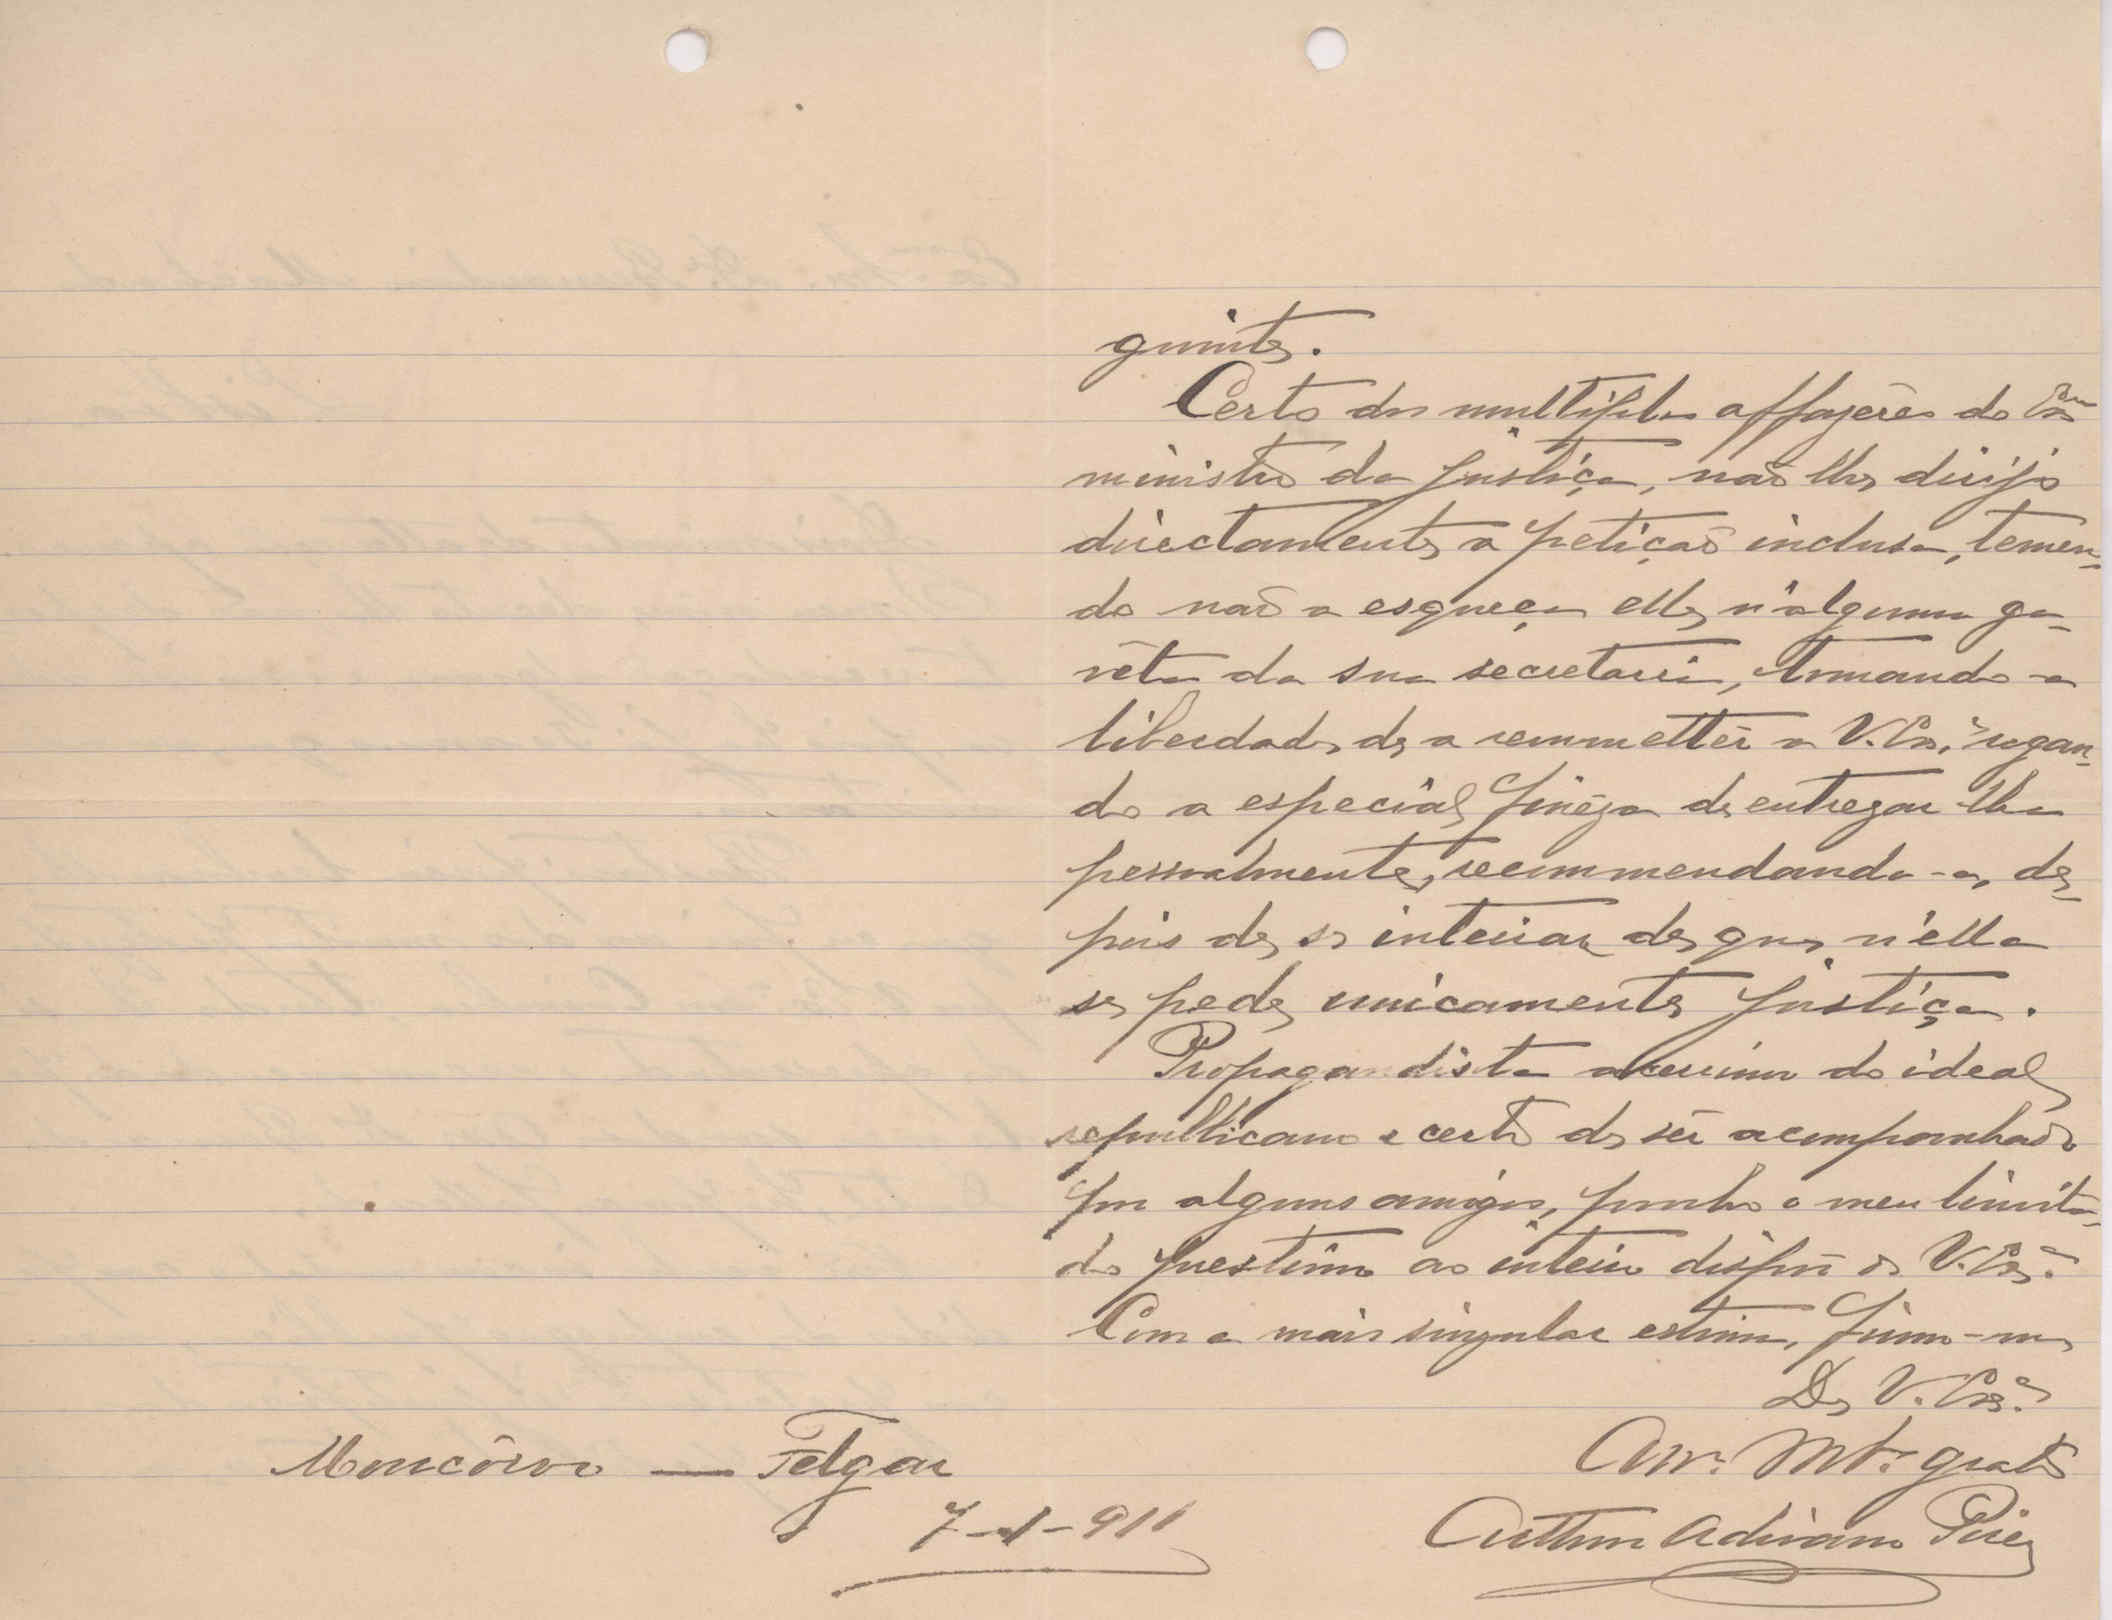 guintes.
Certo dos multiplos affazeres do Exmo
ministro da Justiça, não lhe dirijo
directamente a petição inclusa, temen-
do não a esqueça elle n'alguma ga-
vêta da sua secretaria, tomando a
liberdade de a remmettêr a V. Exª, rogan-
do a especial finêza de entregar-lha
pessoalmente, recommendando-a, de-
pois de se inteirar de que n'ella
se pede unicamente justiça.
Propagandista acerrimo do ideal
republicano e certo de sêr acompanhado
por alguns amigos, ponho o meu limita-
do prestimo ao inteiro dispôr de V. Exª.
Com a mais singular estima, firmo-me
De V. Exª.
Amº. Mtº. grato
Arthur Adriano Pires
Moncôrvo — Felgar
7-1-911